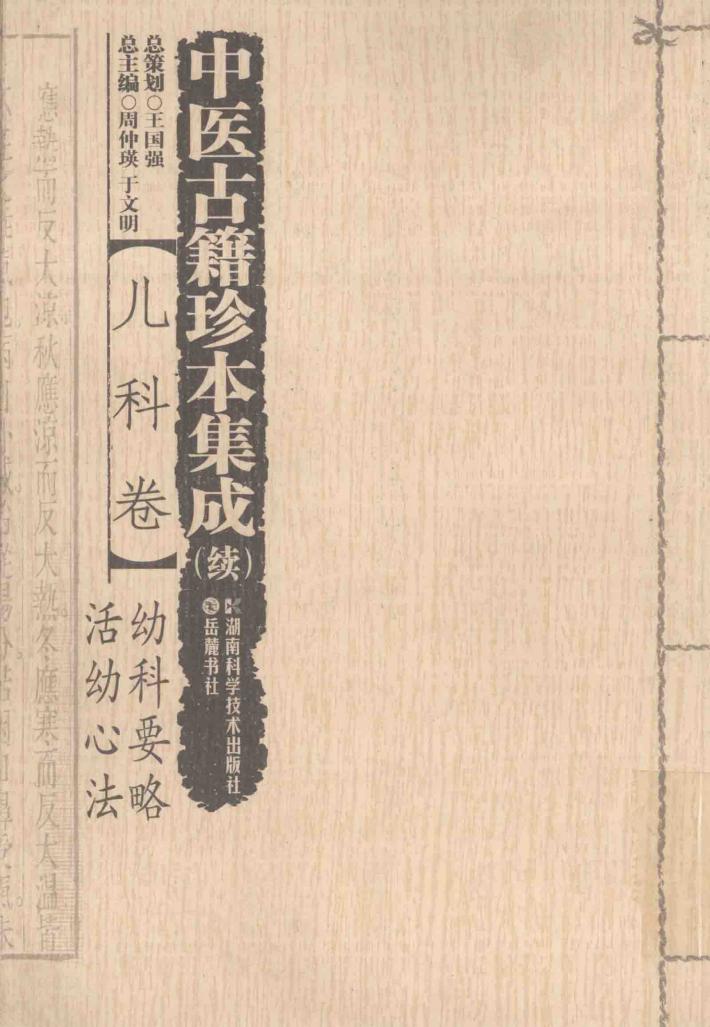 中医古籍珍本集成(续)
湖南科学技术出版社
岳麓书社
总策划○王国强
总主编○周仲瑛 于文明
【儿科卷】
幼科要略
活幼心法
應熱而反大凉秋應凉而反大熱冬應寒而反大温皆